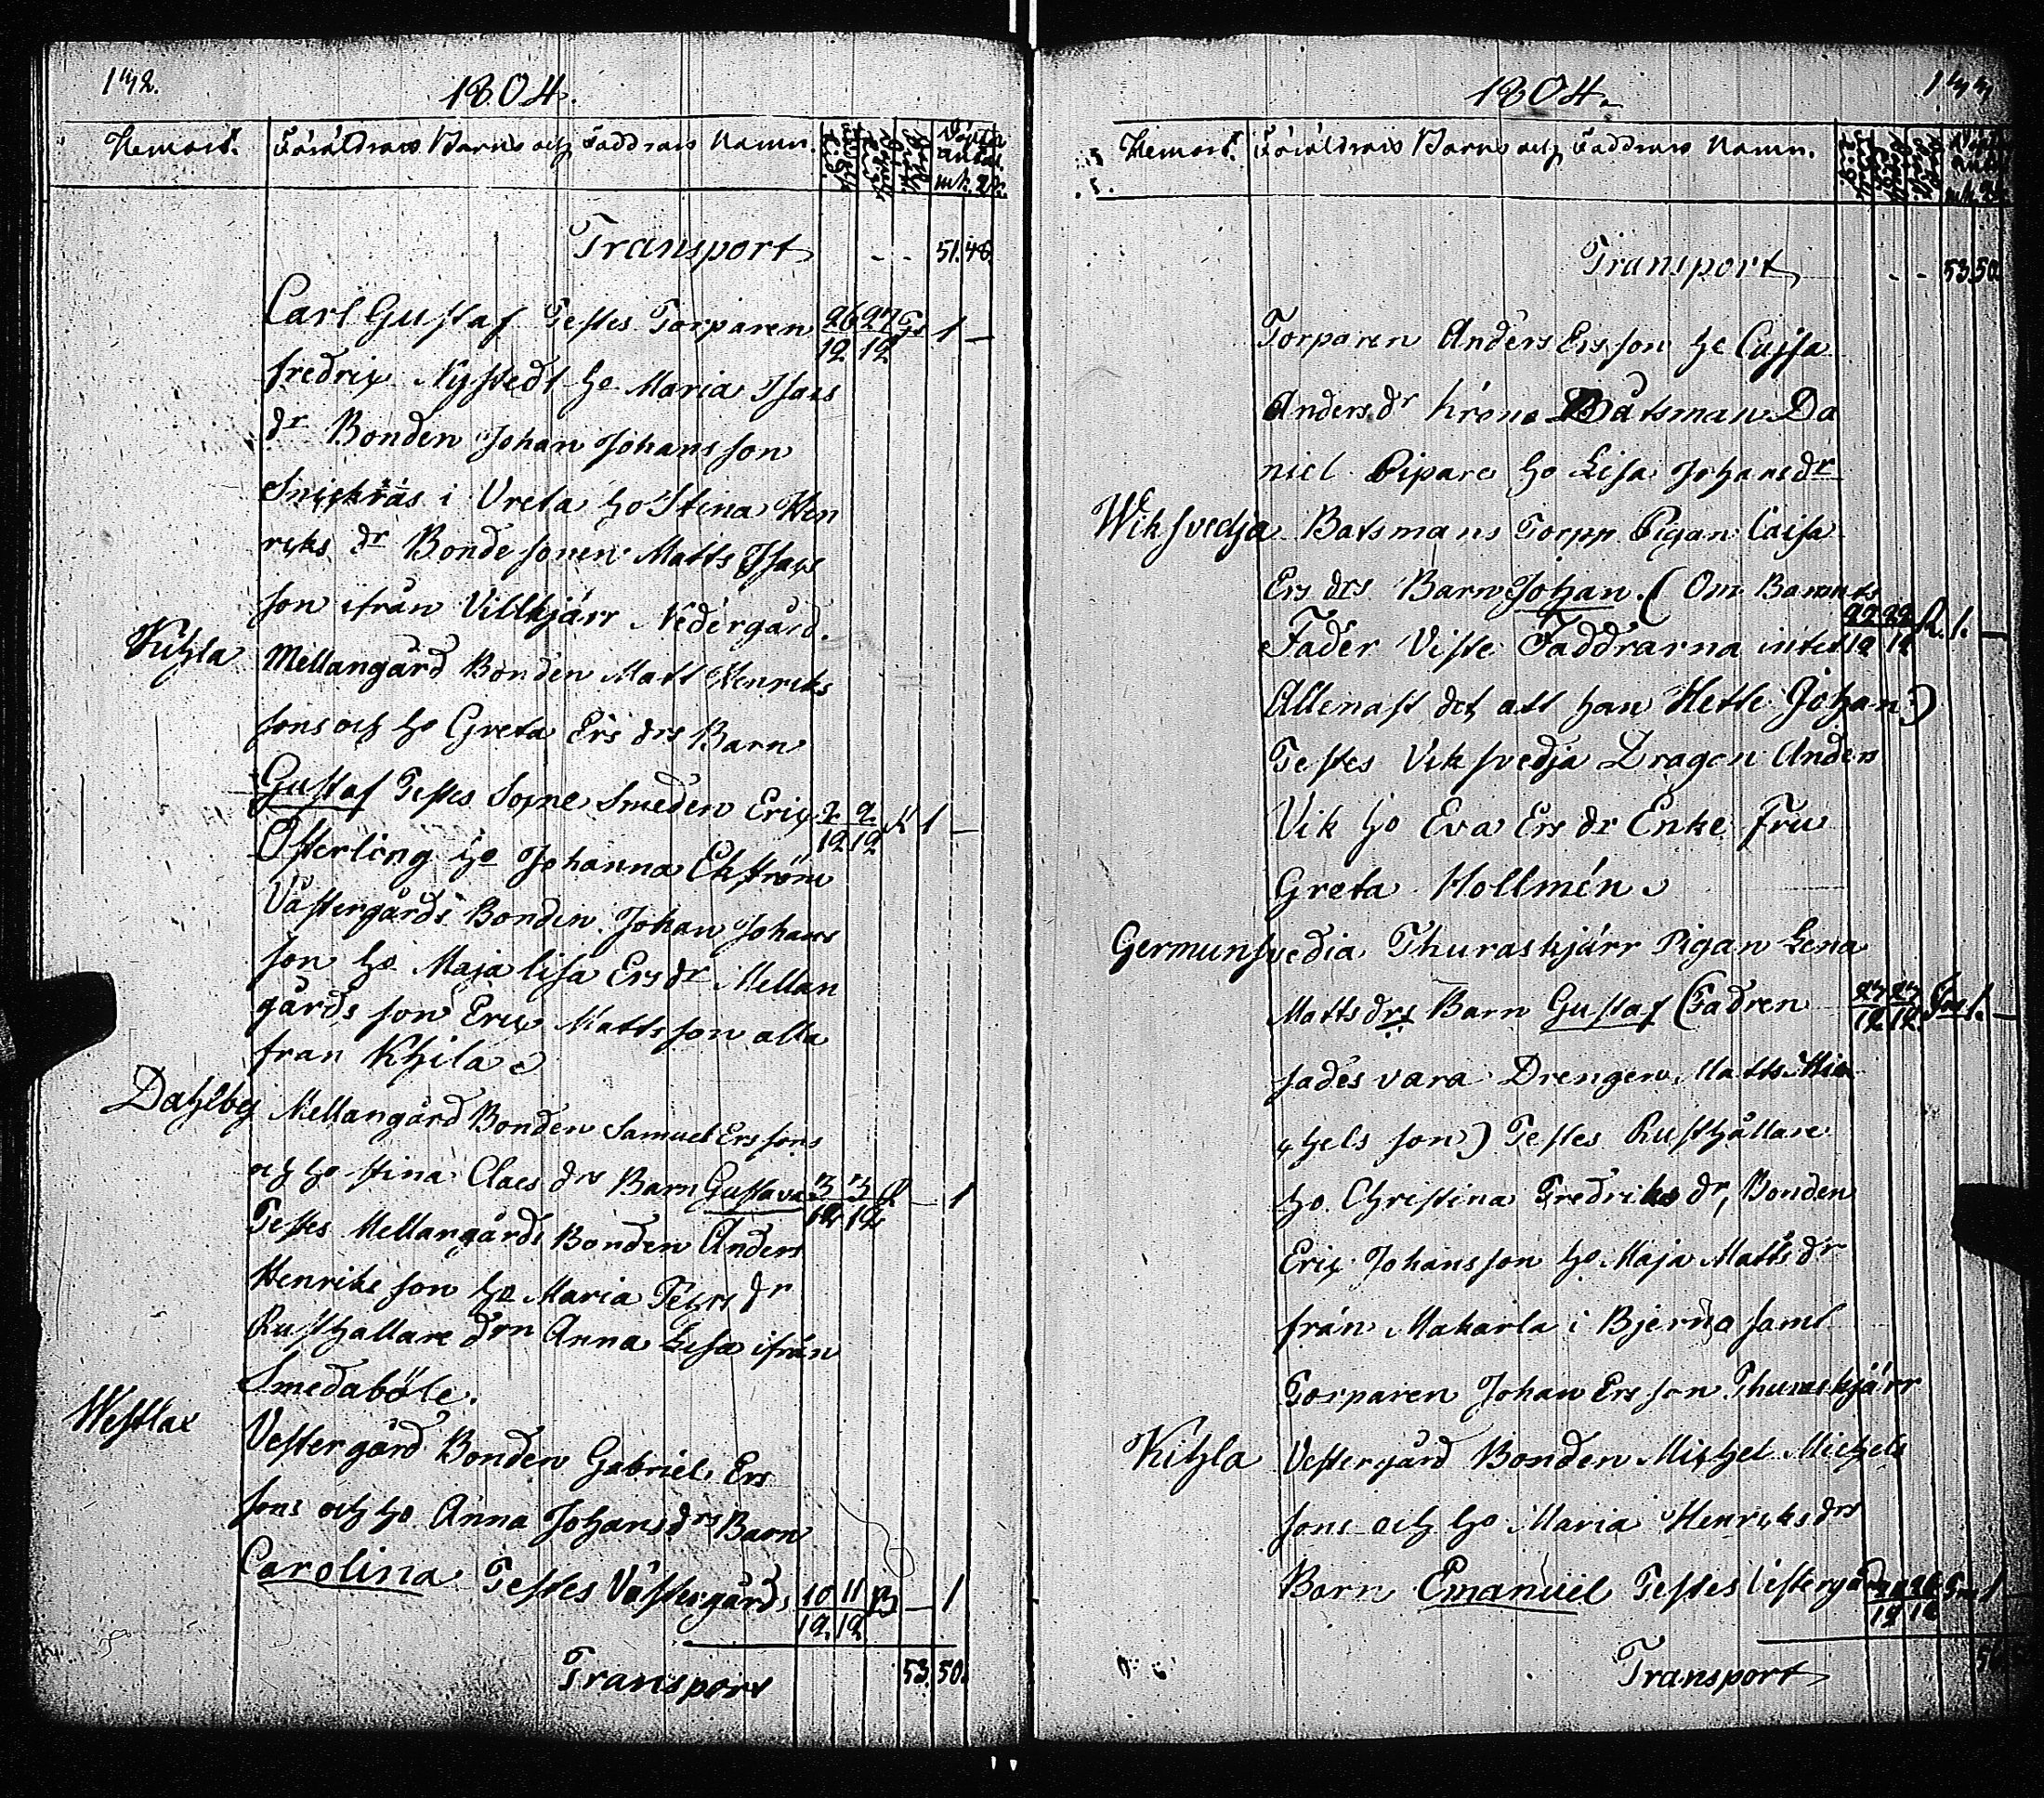 142.
1804.
Hemort. Föräldrars Barns och Faddrars Namn.
Transport - - 51. 48.
Carl Gustaf Testes Torparen 26/12 27/12 1 —
Fredric Nystedt ho Maria Isacs
dr Bonden Johan Johansson
Snickrås i Vreta ho Stina Hen
ricks dr Bondesonen Matts Isacs
son ifrån Villkjärr Nedergård.
Kihla Mellangård Bonden Matt Henriks
sons och ho Greta Ers drs Barn
Gustaf Testes Sokne Smeden Eric 2/12 2/12 1 —
Österling ho Johanna Ekström
Västergårds Bonden Johan Johans
son ho Maja Lisa Ers dr Mellan
gårds son Eric Mattsson alla
från Khila
Dahlby Mellangård Bonden Samuel Erssons
och ho Stina Claes drs Barn Gustava 3/12 3/12 — 1
Testes Mellangårds Bonden Anders
Henriksson ho Maria Pehrs dr
Rusthållare drn Anna Lisa ifrån
Smedaböle.
Westlax Vestergård Bonden Gabriel Ers
sons och ho Anna Johans drs Barn
Carolina Testes Västergårds 10/12 11/12 — 1
Transport 53. 50.
1804.
143
Hemort. Föräldrars Barns och Faddrars Namn.
Transport - - 53. 50
Torparen Anders Ersson ho Cajsa
Anders dr Krono Båtsman Da
niel Pipare ho Lisa Johans dr
Wiksvedja Batsmans Torpp Pigan Caisa
Ers drs Barn Johan. (Om Barnets
Fader Viste Faddrarna intet 22/12 22/12 1. —
Allenast det att han Hette Johan)
Testes Viksvedja Dragon Anders
Vik ho Eva Ers dr Enke Fru
Greta Hollmén
Germunsvedia Thuraskjärr Pigan Lena
Matts drs Barn Gustaf (Fadren 23/12 23/12 1. —
sades vara Drengen Matts Mi
chels son) Testes Rusthållare
ho Christina Fredriks dr, Bonden
Eric Johansson ho Maja Matts dr
från Makarla i Bjerno samt
Torparen Johan Ersson Thuraskjärr
Kihla Vestergård Bonden Michel Michels
sons och ho Maria Henricks drs
Barn Emanuel Testes Vestergårds 1
Transport